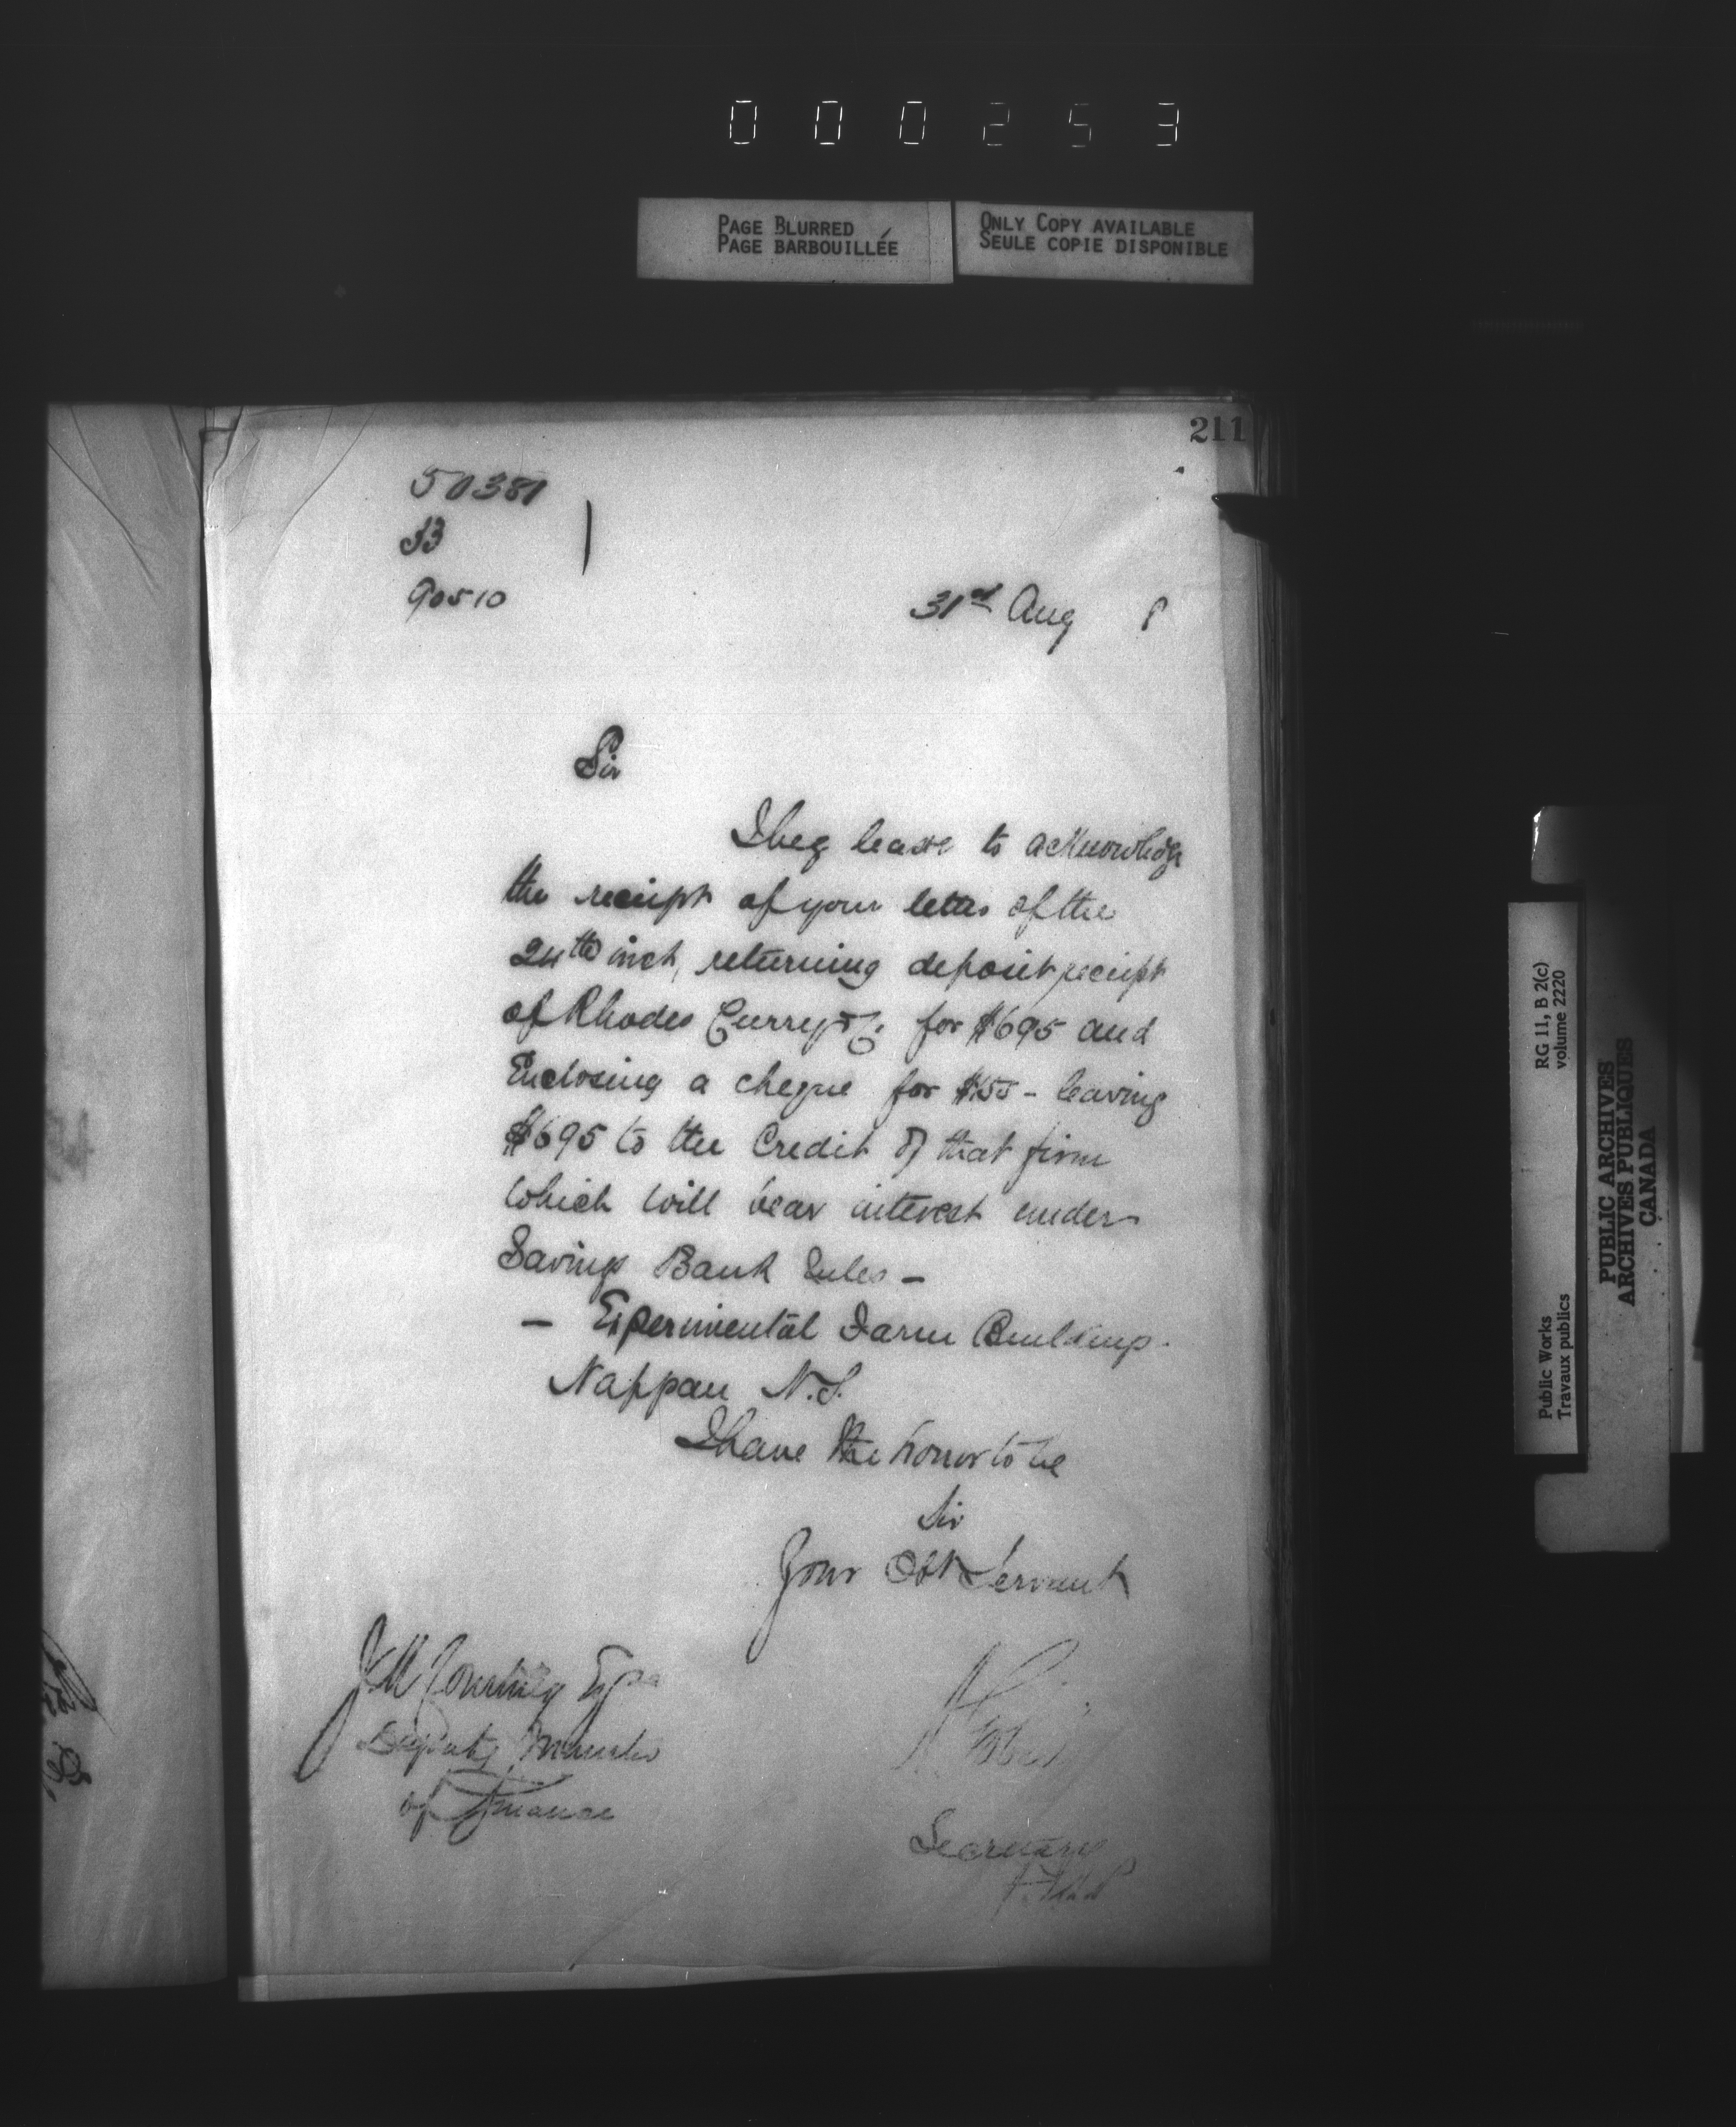 000253
PAGE BLURRED
PAGE BARBOUILLÉE
ONLY COPY AVAILABLE
SEULE COPIE DISPONIBLE
211
50381
90510
31st Aug 8
Sir
I beg leave to acknowledge
the receipt of your letter of the
24th inst, returning deposit receipt
of Rhodes Curry & Co. for $695 and
Enclosing a cheque for $155 - leaving
$695 to the Credit of that firm
which will bear interest under
Savings Bank Rules -
- Experimental Farm Buildings.
Nappan N.S.
I have the honor to be
Sir
Your Obt Servant
J M Courtney Esqre
Deputy Minister
of Finance
A Gobeil
Secretary
RG 11, B 2(c)
volume 2220
Public Works
Travaux publics
PUBLIC ARCHIVES
ARCHIVES PUBLIQUES
CANADA